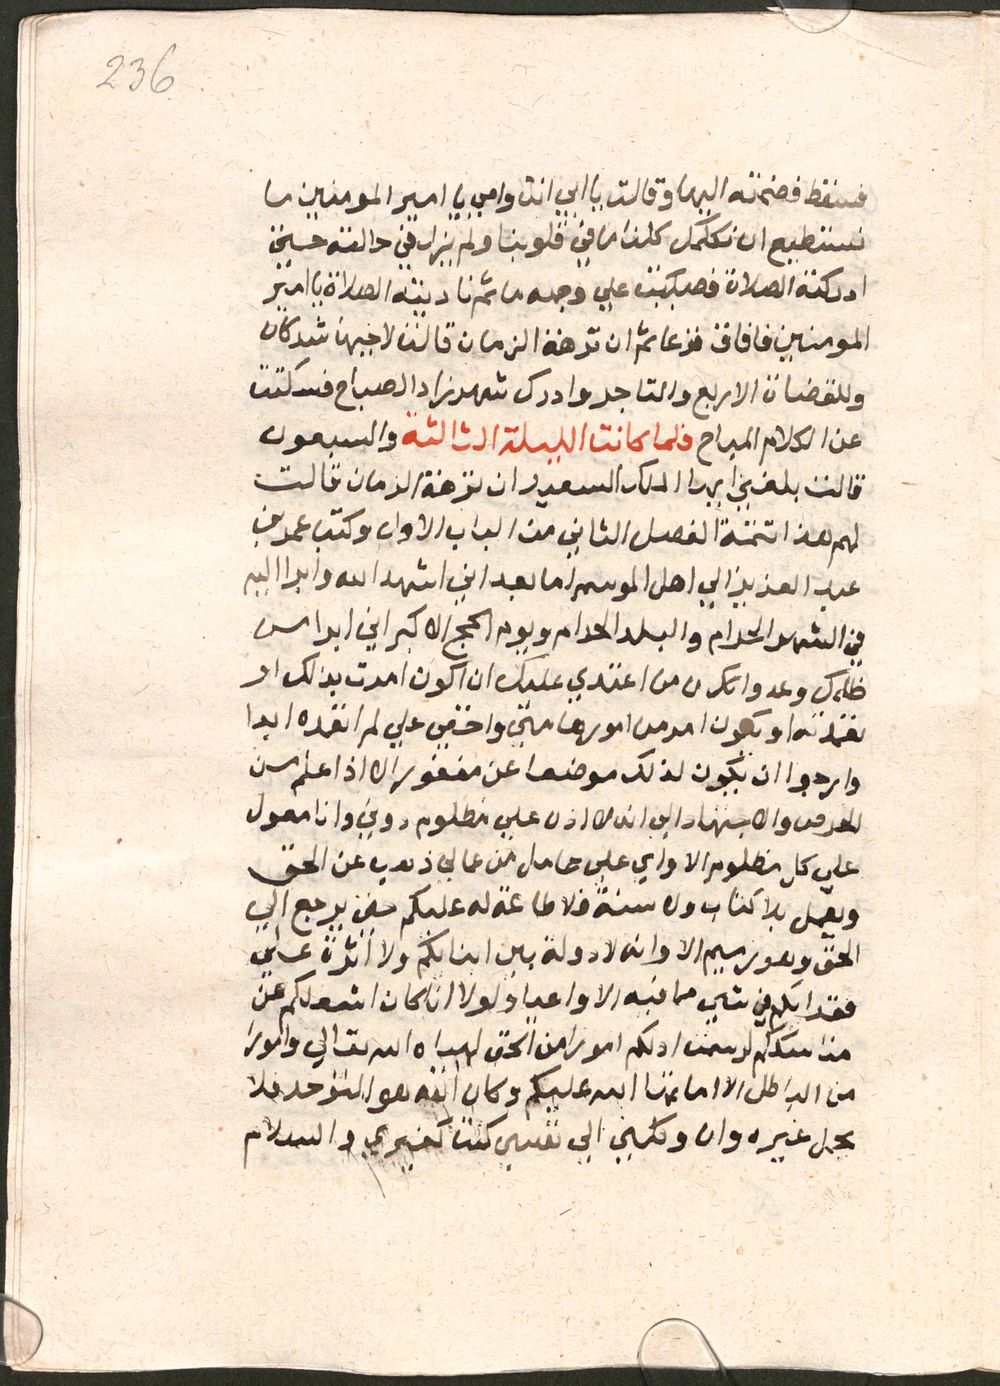 236
فسقط فضمته اليها وقالت يا ابي انت وامي يا امير المومنين ما
نستطيع ان نكلمك كلنا ما في قلوبنا ولم يزل في حالته حتي
ادركته الصلاة فصببت علي وجهه ما ثم ناديته الصلاة يا امير
المومنين فافاق فزعا ثم ان نزهة الزمان قالت لاخيها شركان
وللقضاة الاربع والتاجر وادرك شهرزاد الصباح فسكتت
عن الكلام المباح فلما كانت الليلة الثالثة والسبعون
قالت بلغني ايها الملك السعيد ان نزهة الزمان قالت
لهم هذا تتمة الفصل الثاني من الباب الاول وكتب عمر بن
عبد العزيز الي اهل الموسم اما بعد اني اشهد الله وابرا اليه
في الشهر الحرام والبلد الحرام ويوم الحج الاكبر اني ابرا من
ظلمكم وعدوانكم من اعتدي عليكم ان اكون امرت بذلك او
تعمدته او يكون امر من امورها مني واخفي علي لم اتعمده ابدا
وارجوا ان يكون لذلك موضعا عن مغفور الا اذا علم من
الحرص والاجتهاد الي انه لا اذن علي مظلوم دوني وانا معول
علي كل مظلوم الا واي عامل من عمالي ذهب عن الحق
وعمل بلا كتاب ولا سنة فلا طاعة له عليكم حتي يرجع الي
الحق وهو رسيم الا وانه لا دولة بين اغنيائكم ولا اثرة علي
فقرائكم في شي مما فيه الا واعيا ولولا ان اكان اشغلكم عن
مناسككم لرسمت لكم امورا من الحق احياه الله تعالي وامورا
من الباطل الا اماتها الله عليكم وكان الله هو المتوحد فلا
يحمل غيره وان وكلني الي نفسي كنت كغيري والسلام